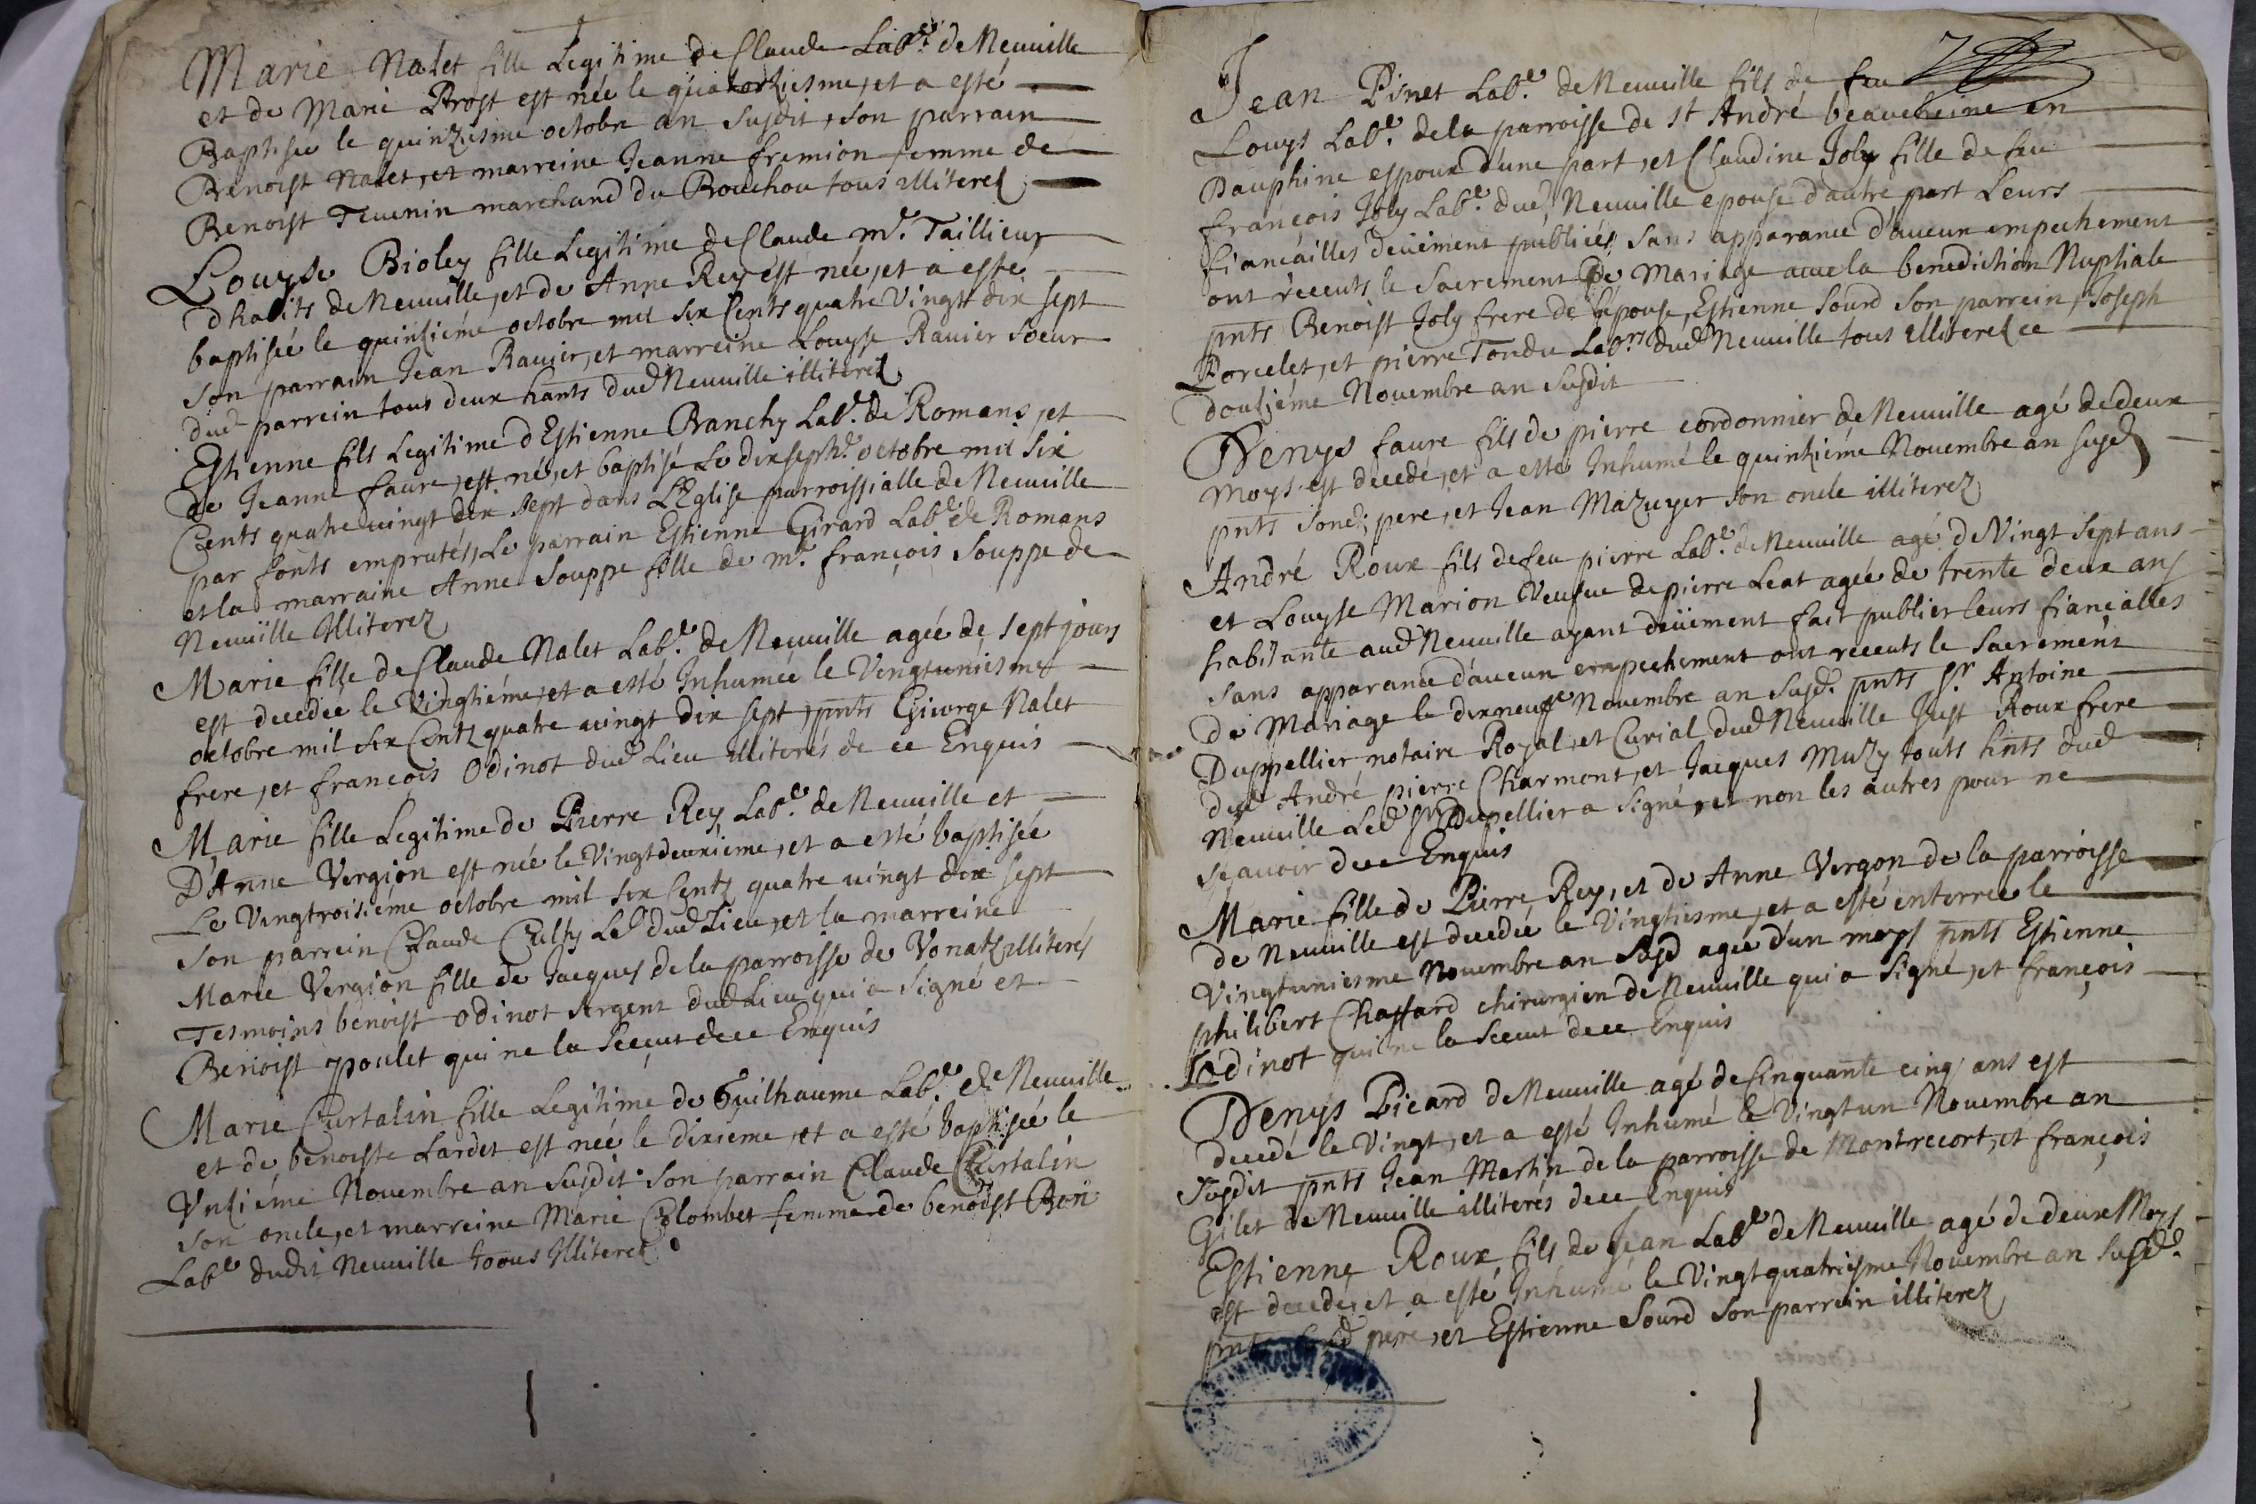 Marie Nalet fille Legitime de Claude Lab.r de Neuuille
et de Marie Prost est née le quatorziesme, et a esté
Baptisée le quinziesme octobre an susdit, son parrain
Benoist Nalet, et marreine Jeanne fremion femme de
Benoist Teuenin marchand du Bouchou tous illiterez
Louyse Bioley fille Legitime de Claude m.e Taillieur
d'habits de Neuuille, et de Anne Rey est née, et a esté
baptisée le quinziéme octobre mil six Cents quatre Vingt dix sept
son parrain Jean Rauier, et marreine Louyse Rauier soeur
dud parrein tous deux hants dud Neuuille illiterez
Estienne fils Legitime d'Estienne Branchy Lab.r de Romans, et
de Jeanne faure, est né, et baptisé Le dixsept.e octobre mil six
Cents quatre vingt dix sept dans L'Eglise parroissialle de Neuuille
par fonts emprutés, Le parrain Estienne Girard Lab.r de Romans
et la marraine Anne Souppe fille de m.e françois Souppe de
Neuuille Illiterez
Marie fille de Claude Nalet Lab.r de Neuuille agée de sept jours
est decedée le Vingtiéme, et a esté Inhumée le Vingtuniesme
octobre mil six Centz quatre vingt dix sept, pnts George Nalet
frere, et françois Odinot dud Lieu illiterés de ce Enquis
Marie fille Legitime de Pierre Rey Lab.r de Neuuille et
D'Anne Vergion est née le Vingtdeuxiéme, et a esté baptisée
Le Vingttroisiéme octobre mil six Centz quatre vingt dix sept
son parrein Claude Cultz Lab dud Lieu, et la marreine
Marie Vergion fille de Jacques de la parroisse de Vonatz illiterés
Tesmoins benoist Odinot sergent dud Lieu qui a signé et
Benoist poulet qui ne la sceut de ce Enquis
Marie Curtalin fille Legitime de Guilhaume Lab.r de Neuuille
et de benoiste Lardet est née le dixieme, et a esté baptisée le
Vnziéme Nouembre an susdit son parrain Claude Curtalin
son oncle, et marreine Marie Colombet femme de benoist Bon
Lab.r dudit Neuuille Toous Illiterez
7
Jean Pinet Lab.r de Neuuille fils de feu
Louys Lab.r de la parroisse de st André beaucheine en
Dauphine espoux d'une part, et Claudine Joly fille de feu
françois Joly Lab.r dud Neuuille epouse d'autre part Leurs
fiancailles deuëment publiées sans apparance d'aucun empechement
ont receuts le sacrement De Mariage auec la benediction Nuptiale
pnts Benoist Joly frere de l'épouse, Estienne sourd son parrein, Joseph
Porcelet, et pierre Tondu Lab.rs dud Neuuille tous illiterez ce
douziéme Nouembre an susdit
Denys faure fils de pierre cordonnier de Neuuille agé de deux
moys est decedé, et a esté Inhumé le quinziéme Nouembre an susd
pnts sond. pere, et Jean Mazuyer son oncle illiterez
André Roux fils de feu pierre Lab.r de Neuuille agé de Vingt sept ans
et Louyse Marion Veufue de pierre Leat agée de trente deux ans
habitante aud Neuuille ayant deuëment fait publier leurs fiancailles
sans apparance d'aucun empechement ont receuts le sacrement
de Mariage le dixneufe Nouembre an susd. pnts sr Antoine
Duppellier notaire Royal, et Curial dud Neuuille Just Roux frere
dud André pierre Charmont, et Jacques Muzy touts hnts dud
Neuuille Led sr Dupellier a signé, et non les autres pour ne
sçauoir de ce Enquis
Marie fille de Pierre Rey, et de Anne Vergon de la parroisse
de Neuuille est decedée le Vingtiesme, et a esté enterrée le
Vingtuniesme Nouembre an susd agée d'un moys pnts Estienne
philibert Chaffard chirurgien de Neuuille qui a signé, et françois
Odinot qui ne la sceut de ce Enquis
Denys Picard de Neuuille agé de Cinquante cinq ans est
decedé le Vingt, et a esté Inhumé le Vingtun Nouembre an
susdit pnts Jean Martin de la parroisse de Montrecort, et françois
Gilet de Neuuille illiterés de ce Enquis
Estienne Roux fils de Jean Lab.r de Neuuille agé de deux Moys
est decedé, et a esté Inhumé le Vingtquatriesme Nouembre an susd.
pnts pere, et Estienne Sourd son parrein illiterez